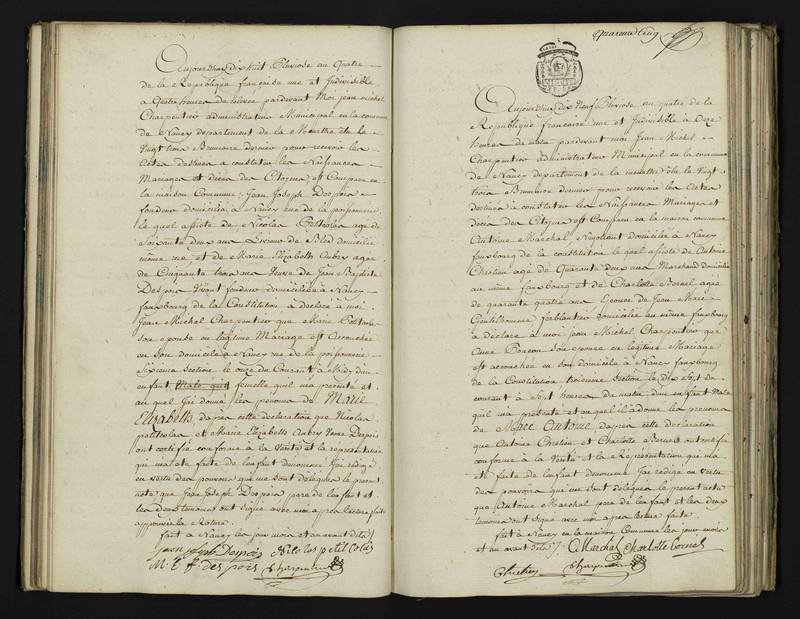 Aujourd'huy Dix huit Pluviose an Quatre
de la Republique française une et Indivisible
a Quatre heures de pardevant Moi jean michel
Charpentier administrateur Municipal en la commune
de Nancy departement de la Meurthe élu le
Vingt trois Brumaire dernier pour recevoir les
Actes destinés a constater les Naissances
Mariages et décès des Citoyens est Comparu en
la maison Commune, Jean Joseph Despois
fondeur domicilié à Nancy rue de la poissonnerie
le quel assisté de Nicolas Petitcolas age de
Soixante deux ans de Bled domicilié
même rue et de Marie Elizabeth Aubry agée
de Cinquante trois ans Veuve de Jean Baptiste
Despois Vivant fondeur domiciliée à Nancy
fauxbourg de la Constitution a déclaré à moi
Jean Michel Charpentier que Marie
son epouse en legitime Mariage est Accouchée
en son domicile a Nancy rue de la poissonnerie
Sixieme Section le onze du Courant à Midy d'un
enfant Male femelle quil ma présenté et
au quel j'ai donné les prenoms de Marie
Elizabeth, daprès cette déclaration que Nicolas
petitcolas et Marie Elizabeth Aubry Veuve Despois
ont certifié conforme à la Verité et la représentation
qui ma été faite de lenfant denommé, J'ai rédigé
en vertu des pouvoirs qui me sont délégués le présent
acte que Jean Joseph Despois pere de lenfant et
les deux temoins ont signé avec moi après lecture faite
approuvé la rature.
fait à Nancy les jour mois et an avant dits
jean joseph Despois Nicolas petit Colas
M. E. A. des pois Charpentier
quarante Cinq
Aujourd'huy Dix Neuf Pluviose an quatre de la
Republique françoise une et Indivisible à Onze
heures de pardevant moi Jean Michel
Charpentier administrateur Municipal en la commune
de Nancy departement de la meurthe élu le Vingt
trois Brumaire dernier pour recevoir les Actes
destinés à constater les Naissances Mariages et
décès des Citoyens est Comparu en la maison commune
Antoine Marchal Negociant domicilié à Nancy
fauxbourg de la constitution le quel assisté de Antoine
Chretien age de Quarante deux ans Marchand domicilié
au même fauxbourg et de Charlotte agée
de quarante quatre ans Epouse de Jean Marie
ferblantier domicilié au même fauxbourg
à déclaré à moi jean Michel Charpentier que
Anne son epouse en legitime Mariage
est accouchée en son domicile à Nancy fauxbourg
de la Constitution troisieme Section le Dix Sept du
courant à Sept heures du matin d'un enfant Male
quil ma présenté et au quel il a donné les prenoms
de Marc Antoine daprès cette déclaration
que Antoine Chretien et Charlotte ont certifié
conforme à la Verité et la Réprésentation qui ma
été faite de lenfant denommé J'ai rédigé en vertu
des pouvoirs qui me sont délégués le présent acte
que Antoine Marchal pere de lenfant et les deux
temoins ont signé avec moi après lecture faite
fait à Nancy en la maison Commune les jour mois
et an avant dits A. Marchal Charlotte
Chretien Charpentier